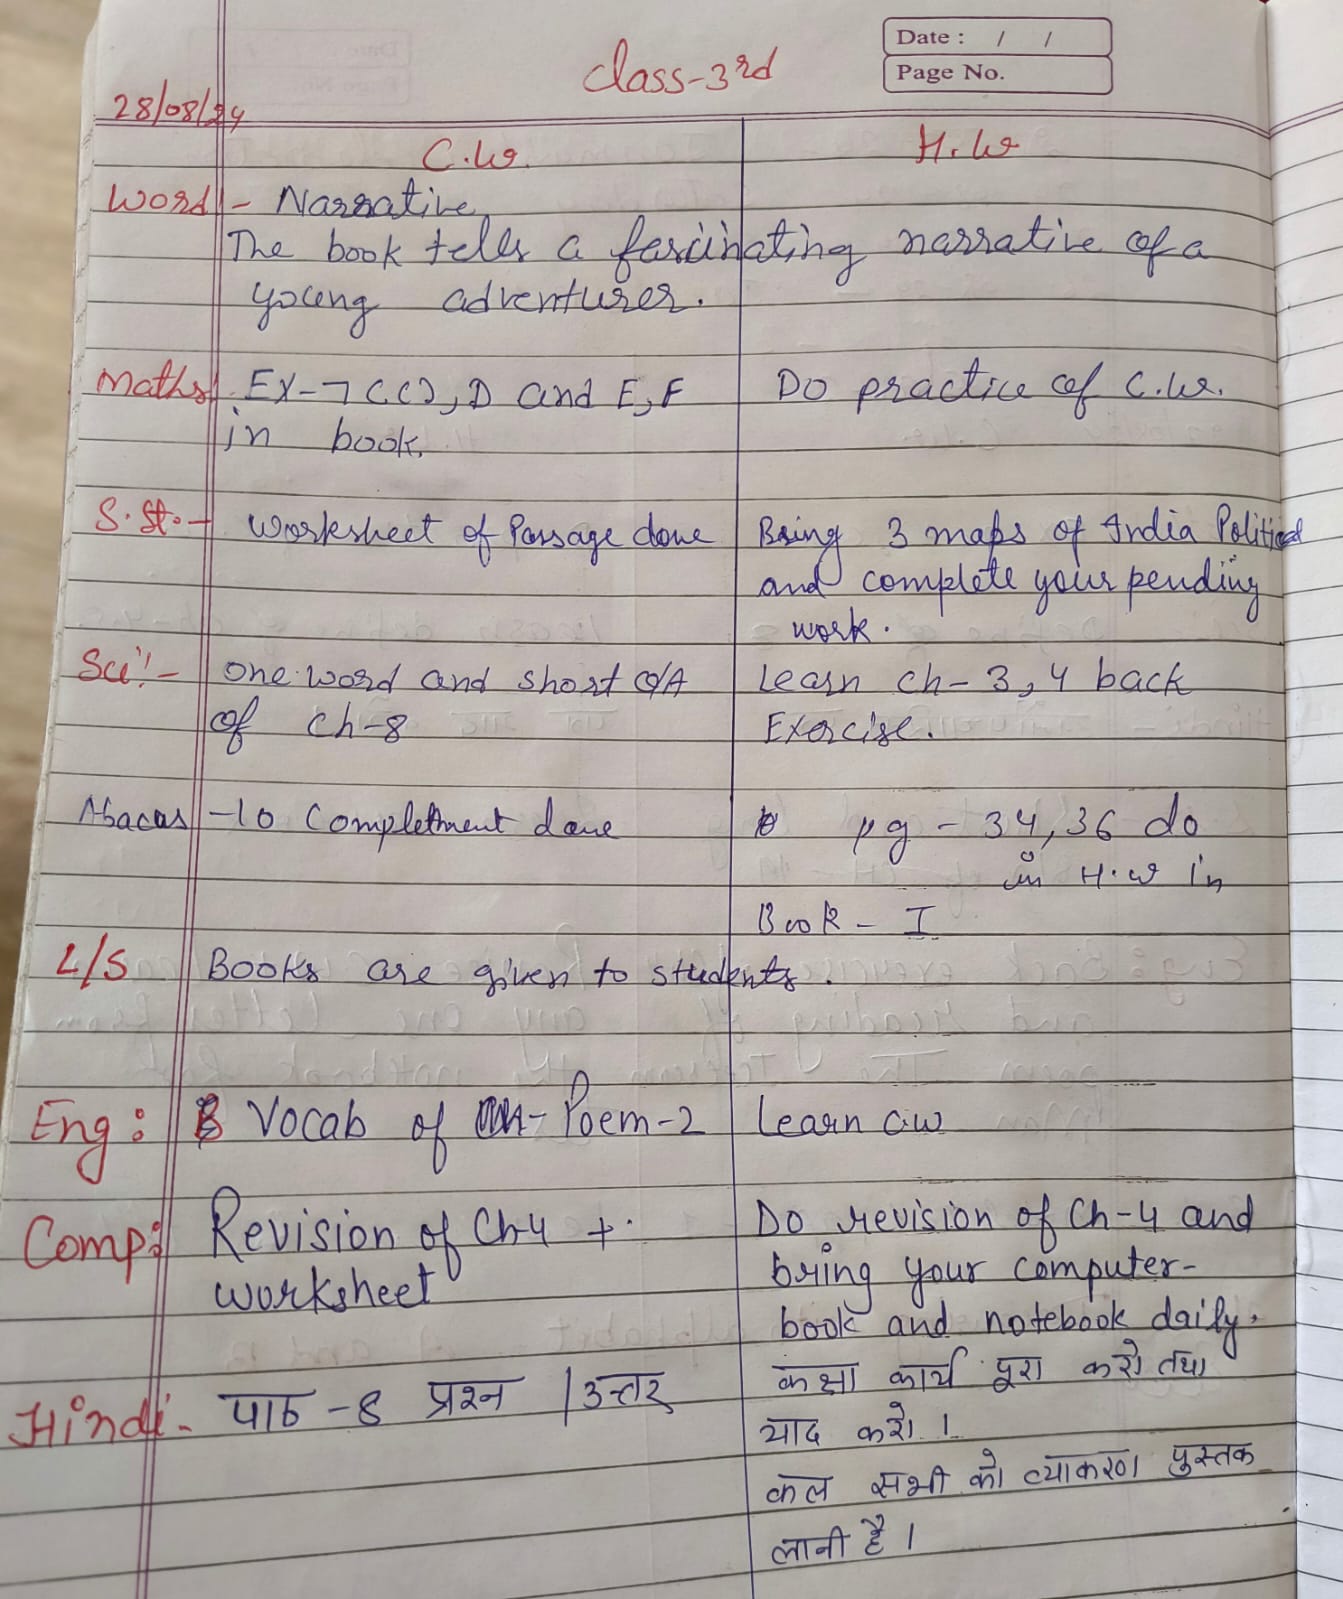 Date : / /
Page No.
Class-3rd
28/08/24
C.W. H.W
Word - Narrative
The book tells a fascinating narrative of a
young adventurer.
Maths Ex-7 C(2), D and E, F Do practice of C.W.
in book.
S.St.- Worksheet of Passage done Bring 3 maps of India Political
and complete your pending
work.
Sci!- One word and short Q/A Learn Ch-3, 4 back
of Ch-8 Exercise.
Abacus -10 Complethment done pg - 34, 36 do
in H.W in
Book - I
L/S Books are given to students.
Eng: Vocab of Poem-2 Learn C.W
Comp: Revision of Ch-4 + Do revision of Ch-4 and
worksheet bring your computer-
book and notebook daily.
Hindi- पाठ -8 प्रश्न / उत्तर कक्षा कार्य पूरा करो तथा
याद करो ।
कल सभी को व्याकरण पुस्तक
लानी है ।